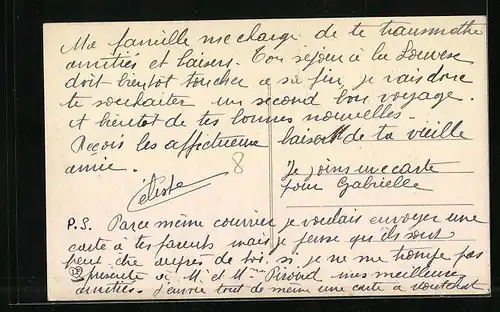 Ma famille me charge de te transmettre
amitiés et baisers. Ton séjour à la Louvesc
doit bientot toucher a sa fin, je vais donc
te souhaiter un second bon voyage.
et bientot de tes bonnes nouvelles.
Reçois les affectueux baisers de ta vieille
amie.
Céleste
8
Je joins une carte
pour Gabrielle
P.S. Par ce même courrier je voulais envoyer une
carte à tes parents mais je pense qu'ils sont
peut être auprès de toi. si je ne me trompe pas
présente a M. et Mme meilleures
amitiés. J'envoie tout de même une carte à Montchat.